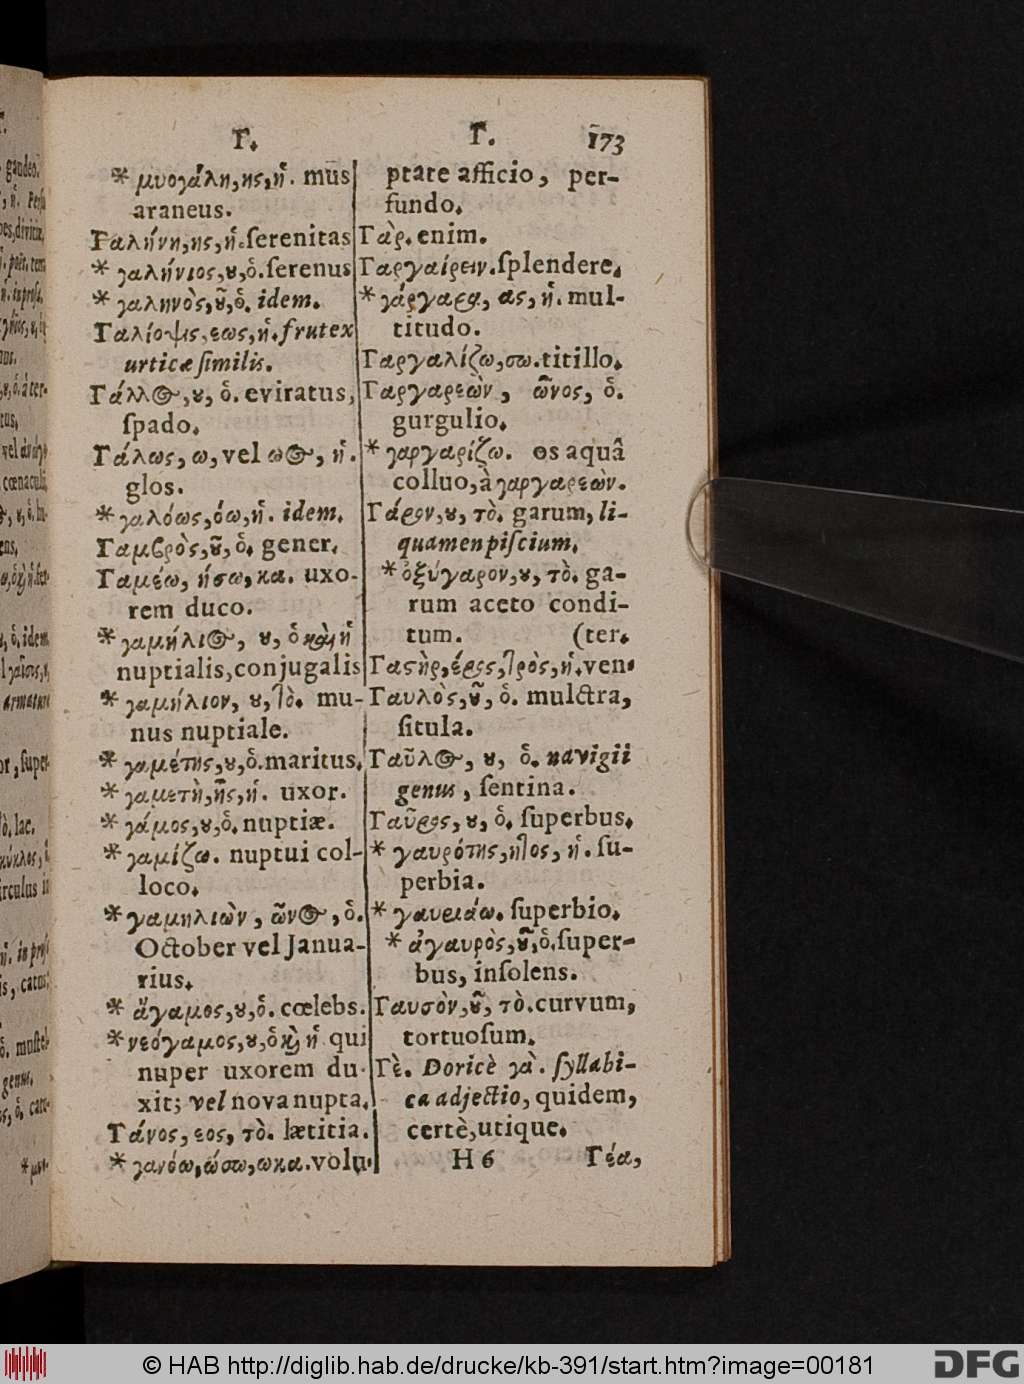 Γ. Γ. 173
* μυογάλη,ης,ἡ. mus
araneus.
Γαλήνη,ης,ἡ.ſerenitas
* γαλήνιος,ȣ,ὁ.ſerenus
* γαληνὸς,ȣ͂,ὁ. idem.
Γαλίοψις,εως,ἡ.frutex
urticæ ſimilis.
Γάλλος,ȣ, ὁ. eviratus,
ſpado.
Γάλως, ω, vel ωος, ἡ.
glos.
* γαλόως,όω,ἡ. idem.
Γαμβρὸς,ȣ͂,ὁ. gener.
Γαμέω, ήσω,κα. uxo-
rem duco.
* γαμήλιος, ȣ, ὁ καὶ ἡ
nuptialis,conjugalis
* γαμήλιον, ȣ,τὸ. mu-
nus nuptiale.
* γαμέτης,ȣ,ὁ.maritus.
* γαμετὴ,ῆς,ἡ. uxor.
* γάμος,ȣ,ὁ. nuptiæ.
* γαμίζω. nuptui col-
loco.
* γαμηλιὼν, ῶνος,ὁ.
October vel Janua-
rius.
* ἄγαμος,ȣ,ὁ. cœlebs.
* νεόγαμος,ȣ,ὁ καὶ ἡ qui
nuper uxorem du-
xit; vel nova nupta.
Γάνος,εος, τὸ. lætitia.
* γανόω,ώσω,ωκα.volu-
ptate afficio, per-
fundo.
Γὰρ. enim.
Γαργαίρειν.ſplendere.
* γάργαρα, ας, ἡ. mul-
titudo.
Γαργαλίζω,σω.titillo.
Γαργαρεὼν, ῶνος, ὁ.
gurgulio.
* γαργαρίζω. os aquâ
colluo,à γαργαρεών.
Γάρον,ȣ, τὸ. garum, li-
quamen piſcium.
* ὀξύγαρον,ȣ, τὸ. ga-
rum aceto condi-
tum. (ter.
Γαϛὴρ,έρος,τρὸς,ἡ.ven-
Γαυλὸς,ȣ͂, ὁ. mulctra,
ſitula.
Γαῦλος, ȣ, ὁ. navigii
genus, ſentina.
Γαῦρος, ȣ, ὁ. ſuperbus.
* γαυρότης,ητος, ἡ. ſu-
perbia.
* γαυριάω. ſuperbio.
* ἀγαυρὸς,ȣ͂,ὁ.ſuper-
bus, inſolens.
Γαυσὸν,ȣ͂, τὸ.curvum,
tortuoſum.
Γὲ. Doricè γὰ. ſyllabi-
ca adjectio, quidem,
certè,utique.
H 6 Γέα,
© HAB http://diglib.hab.de/drucke/kb-391/start.htm?image=00181
DFG